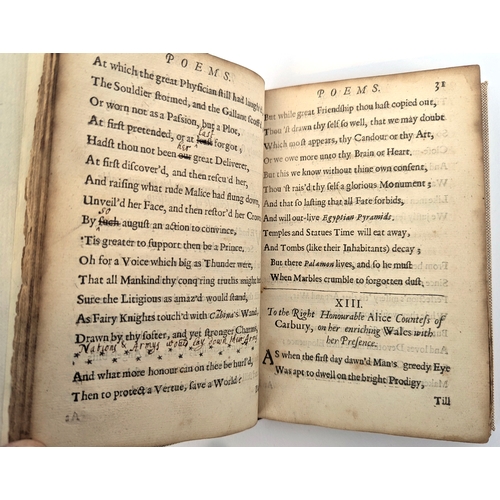 POEMS.
At which the great Physician still had
The Souldier stormed, and the Gallant scoff'd
Or worn not as a Passion, but a Plot,
At first pretended, or at last forgot;
Hadst thou not been her great Deliverer,
At first discover'd, and then rescu'd her,
And raising what rude Malice had flung down,
Unveil'd her Face, and then restor'd her Crown
By so august an action to convince,
'Tis greater to support then be a Prince,
Oh for a Voice which big as Thunder were,
That all Mankind thy conquring truths might
Sure the Litigious as amaz'd would stand,
As Fairy Knights touch'd with Cabina's Wand,
Drawn by thy softer, and yet stronger Charms,
Nations & Armys would lay down their Arms
And what more honour can on thee be hurl'd,
Then to protect a Vertue, save a World
POEMS.
31
But while great Friendship thou hast copied out,
Thou'st drawn thy self so well, that we may doubt
Which most appears, thy Candour or thy Art,
Or we owe more unto thy Brain or Heart,
But this we know without thine own consent,
Thou'st rais'd thy self a glorious Monument;
And that so lasting that all Fate forbids,
And will out-live Egyptian Pyramids,
Temples and Statues Time will eat away,
And Tombs (like their Inhabitants) decay;
But there Palamon lives, and so he must
When Marbles crumble to forgotten dust.
XIII.
To the Right Honourable Alice Countess of
Carbury, on her enriching Wales with
her Presence.
AS when the first day dawn'd Man's greedy Eye
Was apt to dwell on the bright Prodigy,
Till